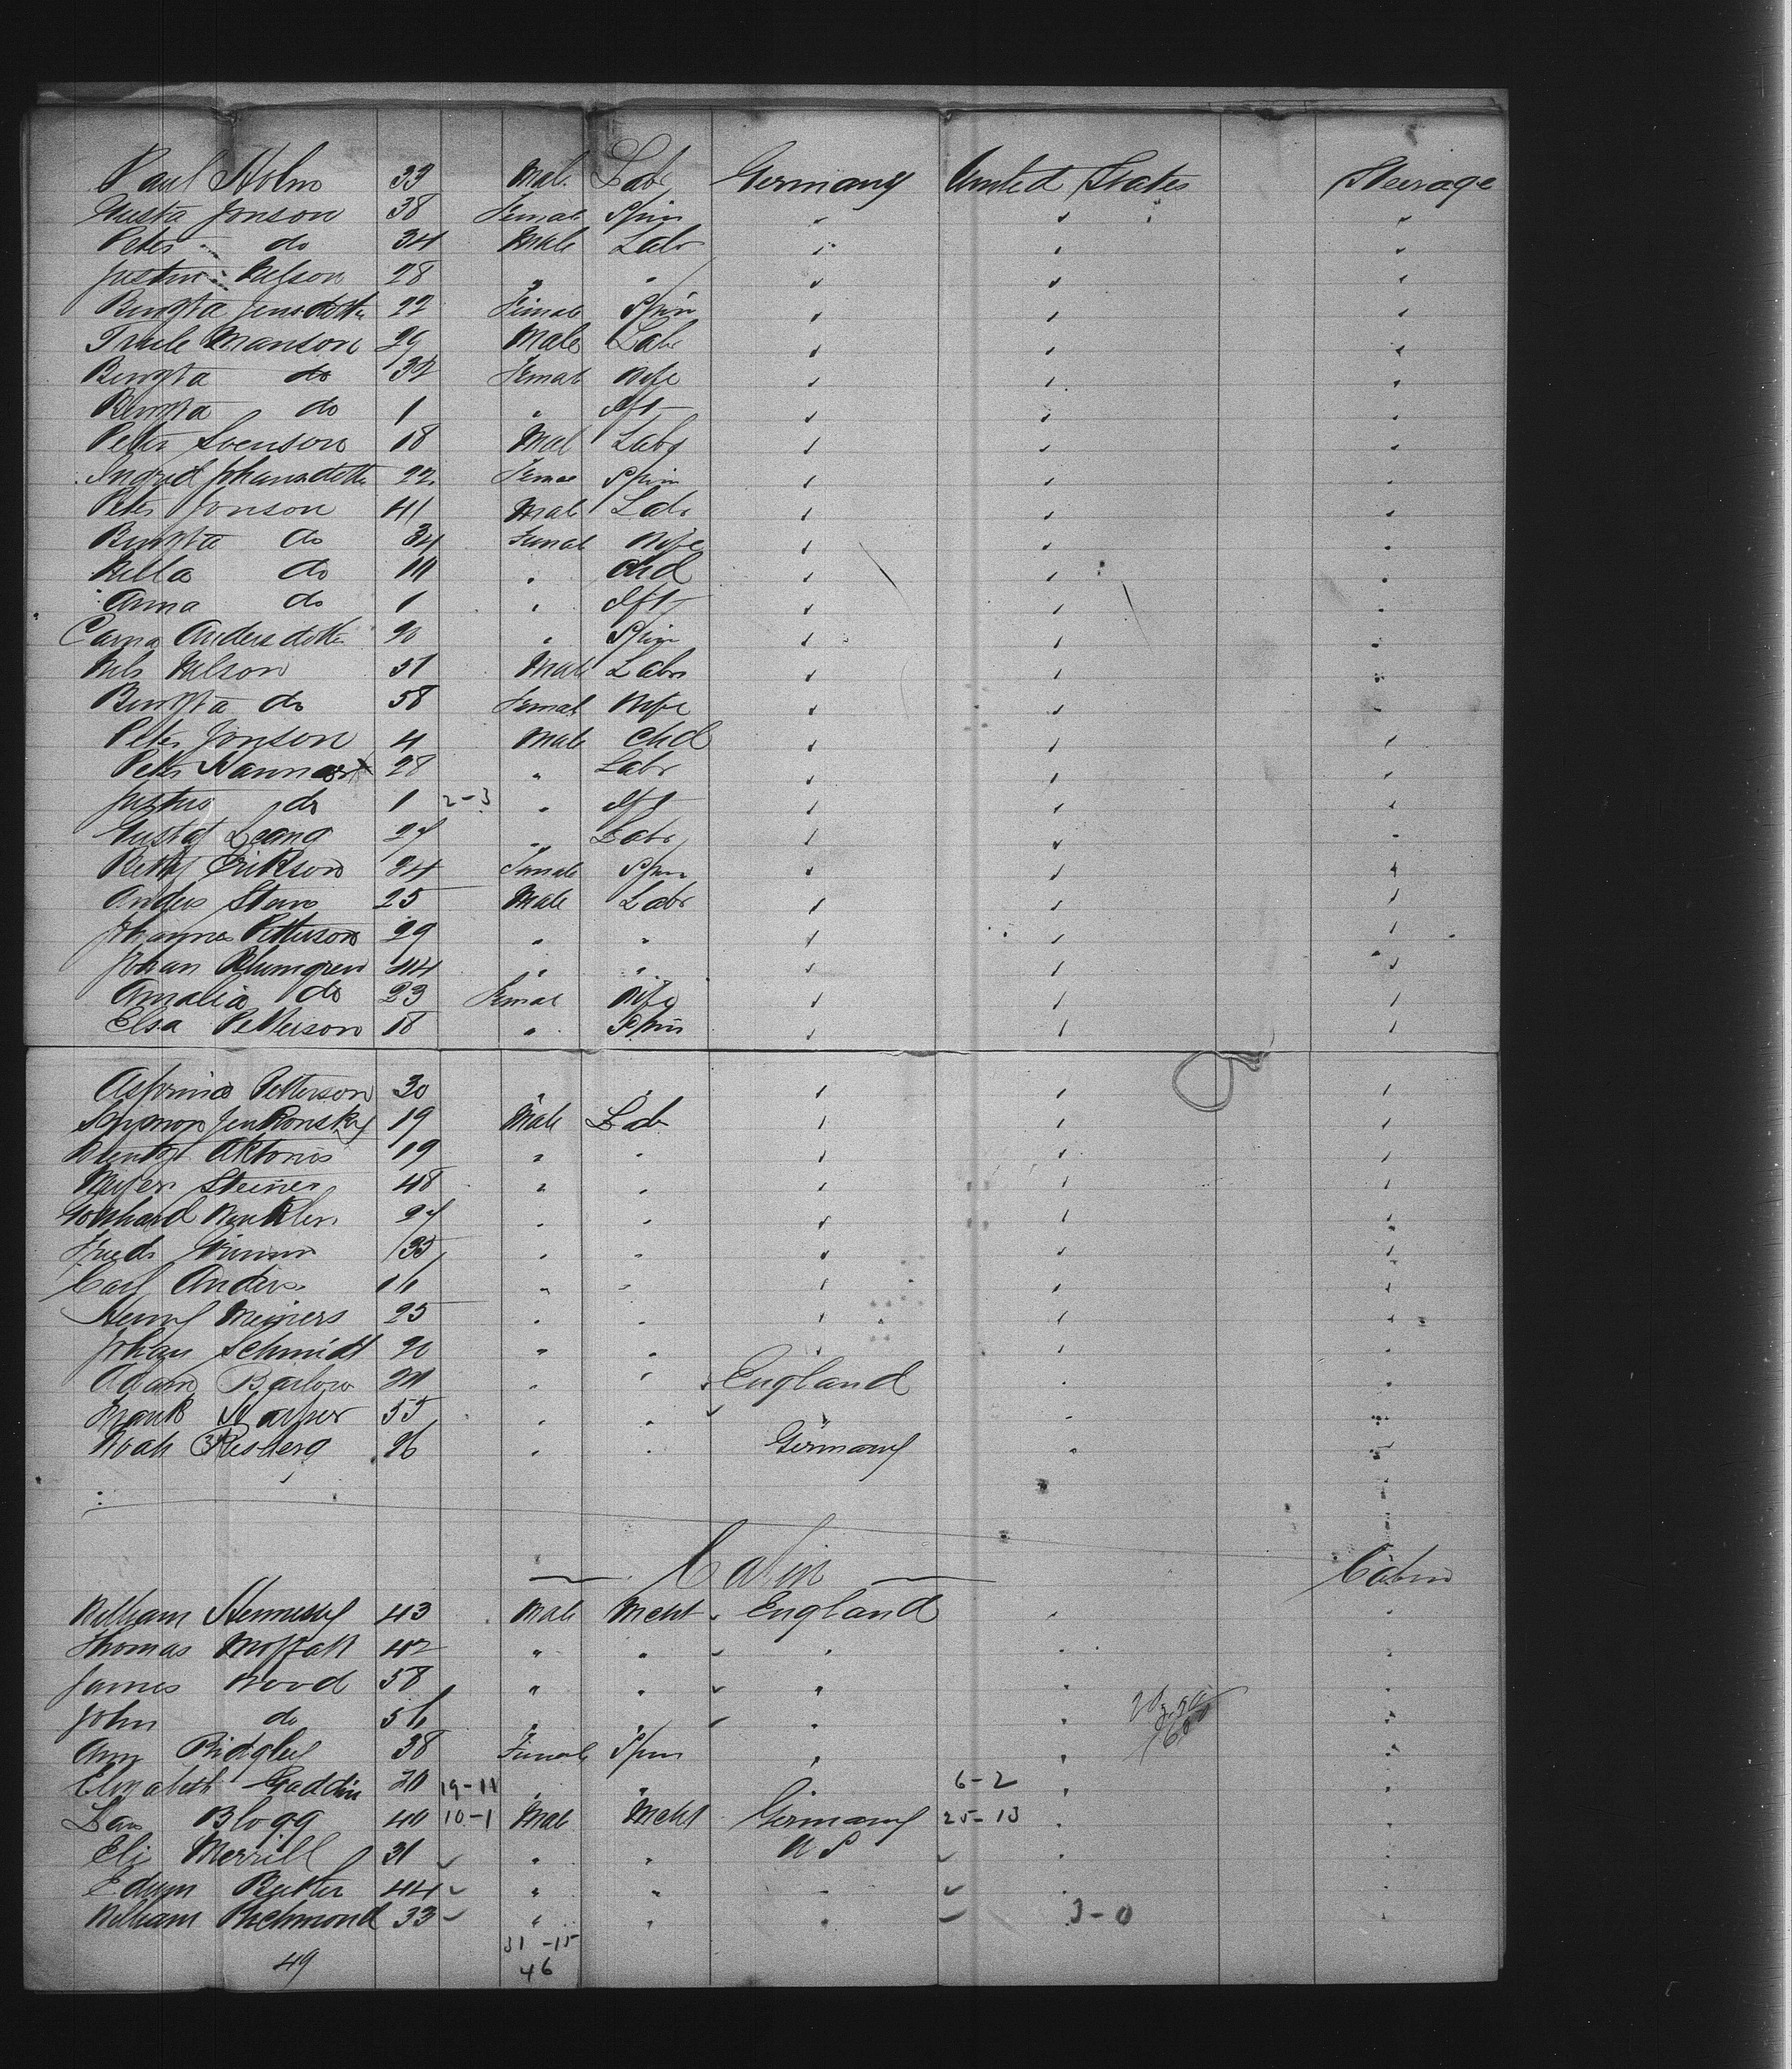 Paul Holm 33 Male Labr Germany United States Steerage
Gusta Jonson 38 Female Spin " " "
Peter do 34 Male Labr " " "
Justin Nelson 28 " " " " "
Bengta Jensdotte 22 Female Spin " " "
Trule Manson 29 Male Labr " " "
Bengta do 32 Female Wife " " "
Bengta do 1 " Ift " " "
Peter Svenson 18 Mal Labr " " "
Ingrid Johansdotte 22 Femae Spin " " "
Peter Jonson 41 Male Labr " " "
Bengta do 34 Female Wife " " "
Nilla do " Chd " " "
Anna do 1 " Ift " " "
Carna Andersdotte 20 " Spin " " "
Nils Nelson 51 Male Labr " " "
Bengta do 58 Female Wife " " "
Peter Jonson 4 Male Chd " " "
Peter 28 " Labr " " "
Justus do 1 2-3 " Ift " " "
Gustaf 27 " Labr " " "
Betty Erikson 24 Female Spin " " "
Anders Sten 25 Male Labr " " "
Johanna Petterson 29 " " " " "
Johan Blumgren 44 " " " " "
Amalia do 23 Female Wife " " "
Elsa Petterson 18 " Spin " " "
Petterson 30 " " " " "
19 Male Lab " " "
19 " " " " "
Meyer Steiner 48 " " " " "
Winkler 27 " " " " "
Fredr 35 " " " " "
Carl Anders 16 " " " " "
Henry Meiners 25 " " " " "
Johan Schmidt 20 " " " " "
Adam Barlow " " England " "
Frank 55 " " " " "
Noah Risberg 26 " " Germany " "
Cabin Cabin
William Hennessy 43 Male Mcht England " "
Thomas Moffatt 42 " " " " "
James Wood 58 " " " " "
John do 56 " " " " "
Ann Ridgley 38 Female Spin " " "
Elizabeth Gaddin 20 19-11 " " " 6-2 " "
Blogg 40 10-1 Male Mcht Germany 25-13 " "
Eliz Merrill 31 " " U S " "
Edwin 44 " " " " "
William Richmond 33 " " " 3-0 "
31-15
49 46